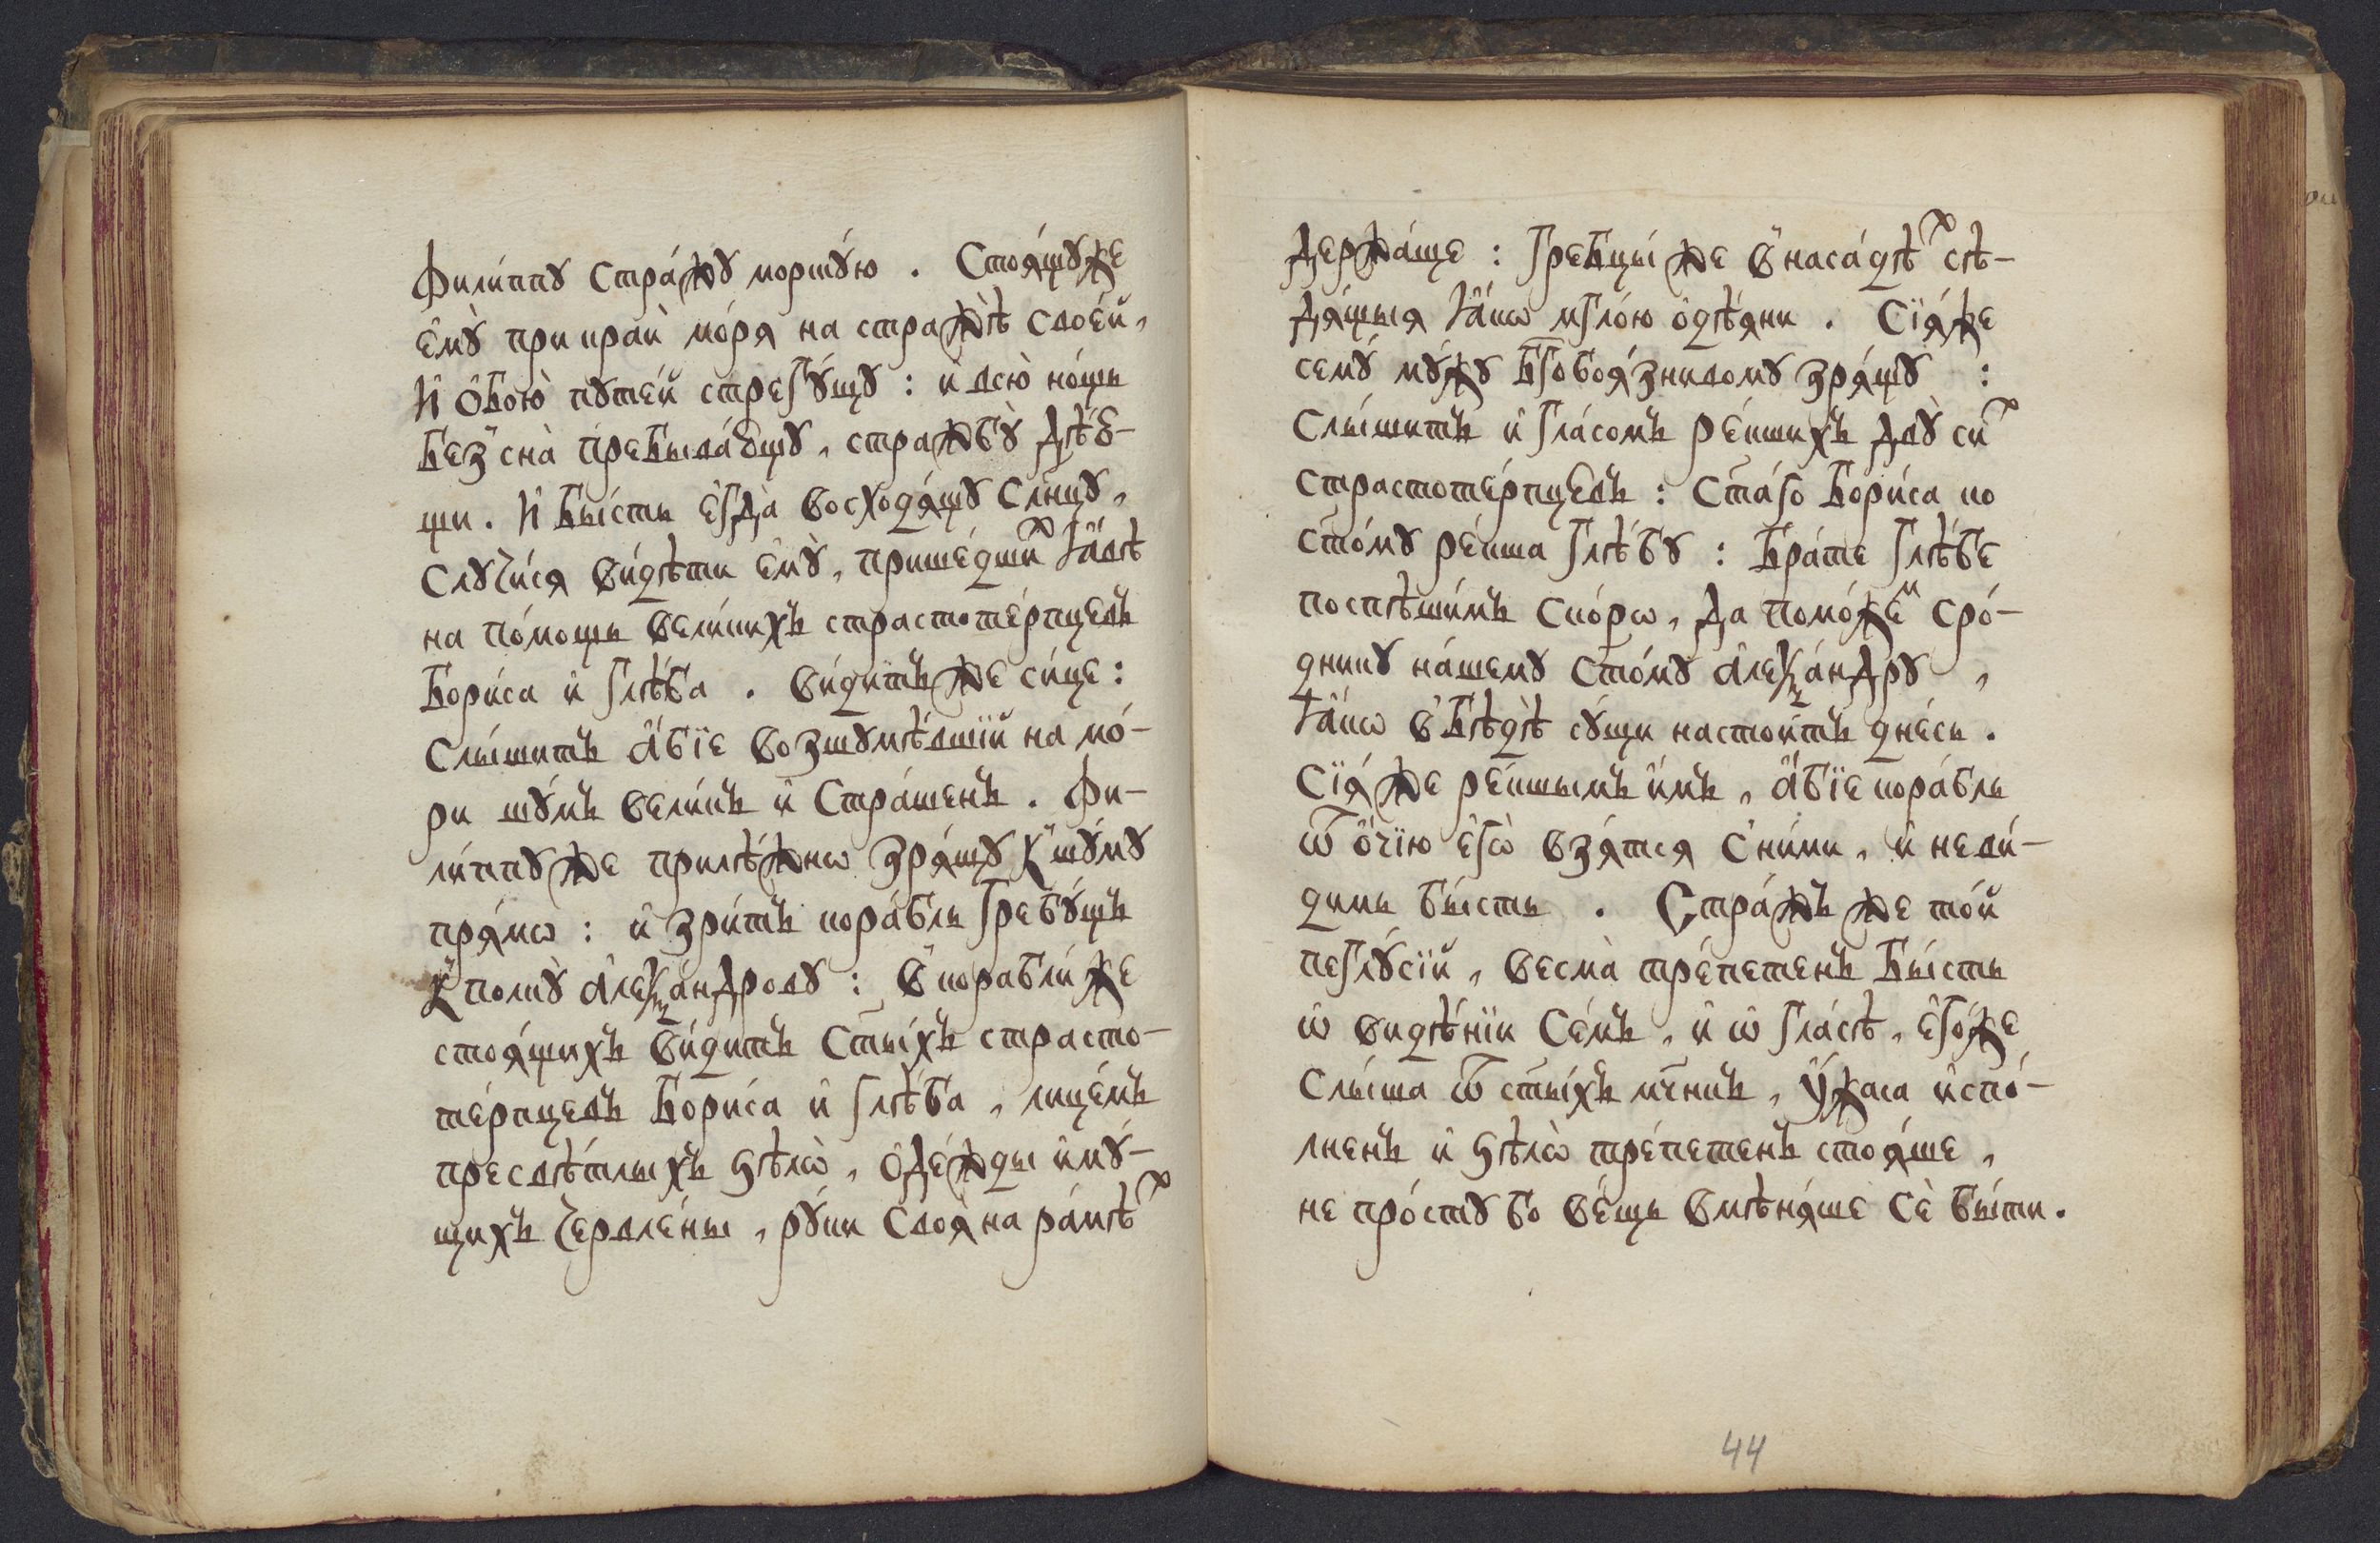 Фили́ппꙋ стра́жꙋ морскꙋ́ю . Стоѧ́щꙋже
є҆мꙋ̀ при краѝ мо́рѧ на стра́жѣ свое́й,
И҆ ѻ҆бою̀ пꙋте́й стрегꙋ́щꙋ : и҆ всю̀ но́щь
без̾ сна̀ пребыва́ющꙋ, стражбꙋ̀ дѣ́ю-
щи . И҆ бы́сть є҆гда̀ восходѧ́щꙋ сл҃нцꙋ,
слꙋчи́сѧ ви́дѣти є҆мꙋ̀, прише́дшихъ ꙗ҆́вѣ
на по́мощь вели́кихъ страстоте́рпцевъ
Бори́са и҆ Глѣ́ба . ви́дитъ же си́це :
слы́шитъ а҆́бїе возшꙋмѣ́вшїй на мо́-
ри шꙋ́мъ вели́къ и҆ стра́шенъ . Фи-
ли́ппꙋ же прилѣ́жнѡ зрѧ́щꙋ к̾ шꙋ́мꙋ
прѧ́мѡ : и҆ зри́тъ кора́бль гребꙋ́щъ
к̾ полкꙋ̀ а҆леѯа́ндровꙋ : в̾ корабли́ же
стоѧ́щихъ ви́дитъ ст҃ы́хъ страсто-
те́рпцевъ Бори́са и҆ Глѣ́ба, лице́мъ
пресвѣ́тлыхъ ѕѣлѡ̀, ѻ҆де́жды и҆мꙋ́-
щихъ червле́ны, рꙋ́ки своѧ̀ на ра́мѣхъ
держа́ще : гребцы́ же в̾ наса́дѣхъ сѣ-
дѧ́щыѧ ꙗ҆́кѡ мгло́ю ѻ҆дѣ́ѧни . Сїѧ́же
семꙋ̀ мꙋ́жꙋ бг҃обоѧ́знивомꙋ зрѧ́щꙋ :
слы́шитъ и҆ гла́сомъ ре́кшихъ двꙋ̀ сихъ
страстоте́рпцевъ : ст҃а́го Бори́са ко
ст҃о́мꙋ ре́кша Глѣ́бꙋ : бра́те Глѣ́бе
поспѣши́мъ ско́рѡ, да помо́жемъ сро́-
дникꙋ на́шемꙋ ст҃о́мꙋ а҆леѯа́ндрꙋ ,
ꙗ҆́кѡ в̾ бѣдѣ̀ сꙋ́щи настои́тъ дне́сь .
Сїѧ́ же ре́кшымъ и҆̀мъ, а҆́бїе кора́бль
ѿ ѻ҆́чїю є҆гѡ̀ взѧ́тсѧ с̾ ни́ми, и҆ неви́-
димь бы́сть . Стра́жъ же то́й
пелгꙋ́сїй, весма̀ тре́петенъ бы́сть
ѡ҆ видѣ́нїи се́мъ, и҆ ѡ҆ гла́сѣ, є҆го́же
слы́ша ѿ ст҃ы́хъ мч҃нкъ, ᲂу҆́жаса и҆спо́-
лненъ и҆ ѕѣлѡ̀ тре́петенъ стоѧ́ше,
не про́стꙋ бо ве́щь вмѣнѧ́ше сѐ бы́ти.
44